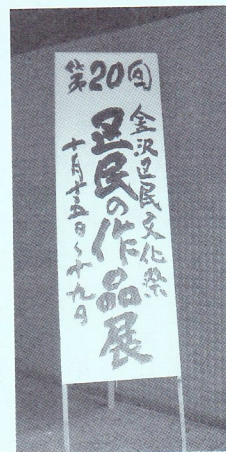 第20回
金沢区民文化祭
区民の作品展
十月十五日〜十九日